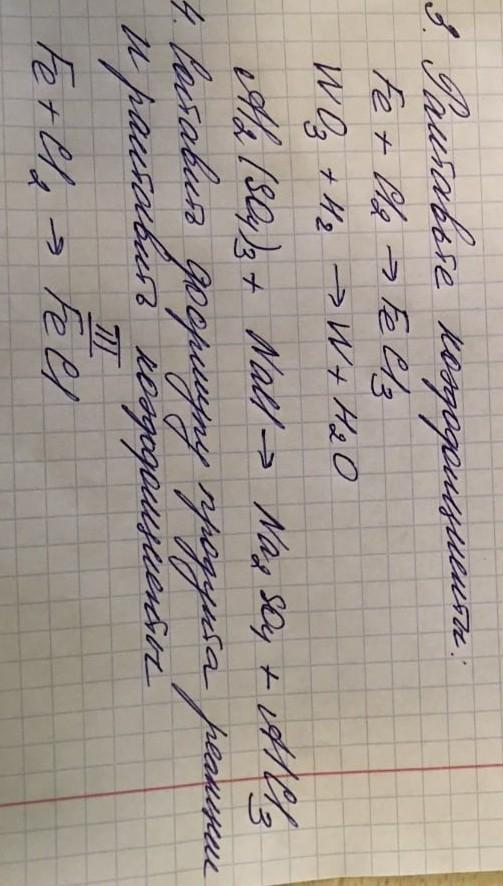 3. Расставьте коэффициенты:
Fe + Cl₂ → FeCl₃
WO₃ + H₂ → W + H₂O
Al₂(SO₄)₃ + NaCl → Na₂SO₄ + AlCl₃
4. Составить формулу продукта реакции
и расставить коэффициенты
III
Fe + Cl₂ → FeCl